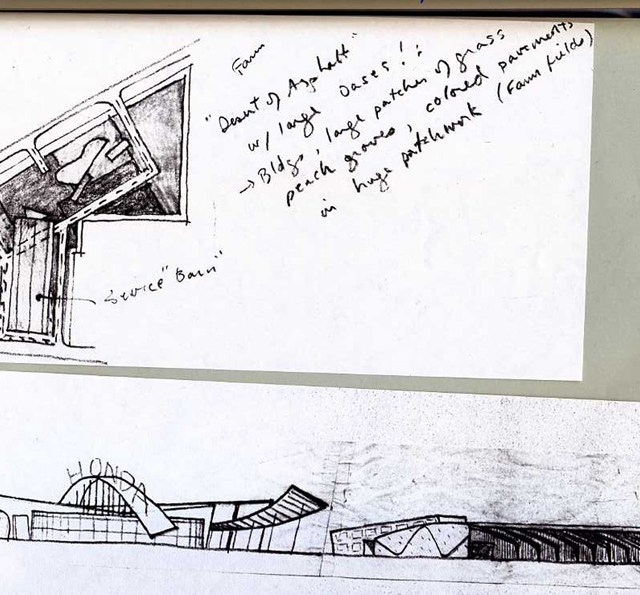 Farm
"Desert of Asphalt"
w/ large oases!!
→ Bldgs, large patches of grass
peach groves, colored pavements
in huge patchwork (Farm fields)
Service "Barn"
HONDA